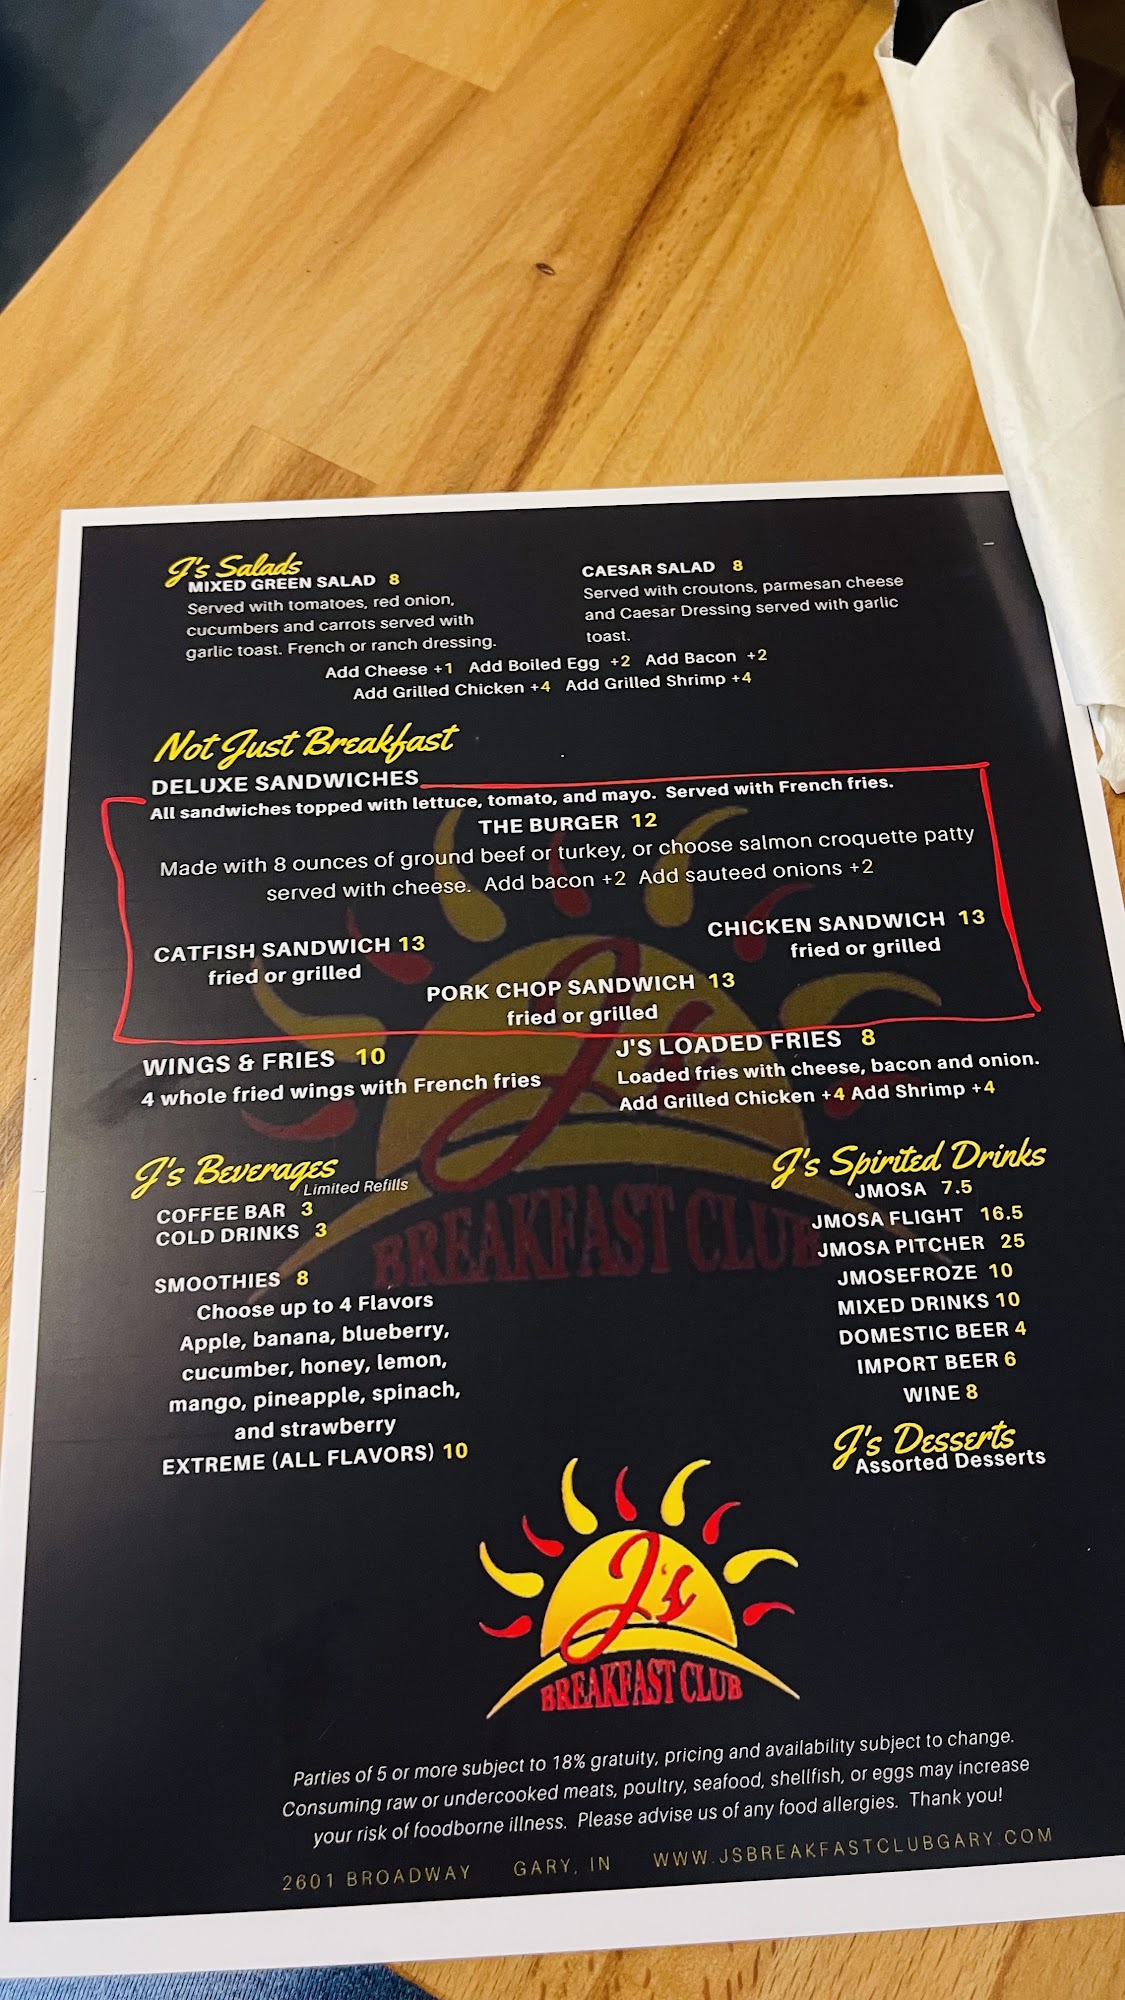 J's Salads
MIXED GREEN SALAD 8
Served with tomatoes, red onion,
cucumbers and carrots served with
garlic toast. French or ranch dressing.
CAESAR SALAD 8
Served with croutons, parmesan cheese
and Caesar Dressing served with garlic
toast.
Add Cheese +1 Add Boiled Egg +2 Add Bacon +2
Add Grilled Chicken +4 Add Grilled Shrimp +4
Not Just Breakfast
DELUXE SANDWICHES
All sandwiches topped with lettuce, tomato, and mayo. Served with French fries.
THE BURGER 12
Made with 8 ounces of ground beef or turkey, or choose salmon croquette patty
served with cheese. Add bacon +2 Add sauteed onions +2
CATFISH SANDWICH 13
fried or grilled
CHICKEN SANDWICH 13
fried or grilled
PORK CHOP SANDWICH 13
fried or grilled
WINGS & FRIES 10
4 whole fried wings with French fries
J'S LOADED FRIES 8
Loaded fries with cheese, bacon and onion.
Add Grilled Chicken +4 Add Shrimp +4
J's
BREAKFAST CLUB
J's Beverages
Limited Refills
COFFEE BAR 3
COLD DRINKS 3
SMOOTHIES 8
Choose up to 4 Flavors
Apple, banana, blueberry,
cucumber, honey, lemon,
mango, pineapple, spinach,
and strawberry
EXTREME (ALL FLAVORS) 10
J's Spirited Drinks
JMOSA 7.5
JMOSA FLIGHT 16.5
JMOSA PITCHER 25
JMOSEFROZE 10
MIXED DRINKS 10
DOMESTIC BEER 4
IMPORT BEER 6
WINE 8
J's Desserts
Assorted Desserts
J's
BREAKFAST CLUB
Parties of 5 or more subject to 18% gratuity, pricing and availability subject to change.
Consuming raw or undercooked meats, poultry, seafood, shellfish, or eggs may increase
your risk of foodborne illness. Please advise us of any food allergies. Thank you!
2601 BROADWAY GARY, IN WWW.JSBREAKFASTCLUBGARY.COM